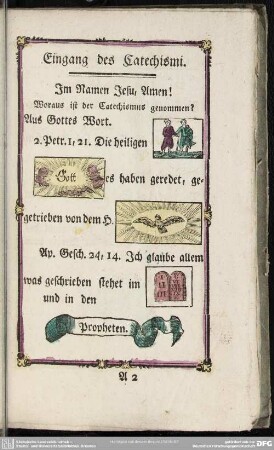 Eingang des Catechismi.
Im Namen Jesu, Amen!
Woraus ist der Catechismus genommen?
Aus Gottes Wort.
2. Petr. 1, 21. Die heiligen
Gott
es haben geredet, ge-
getrieben von dem H.
Ap. Gesch. 24, 14. Ich glaube allem
was geschrieben stehet im
und in den
Propheten.
A 2